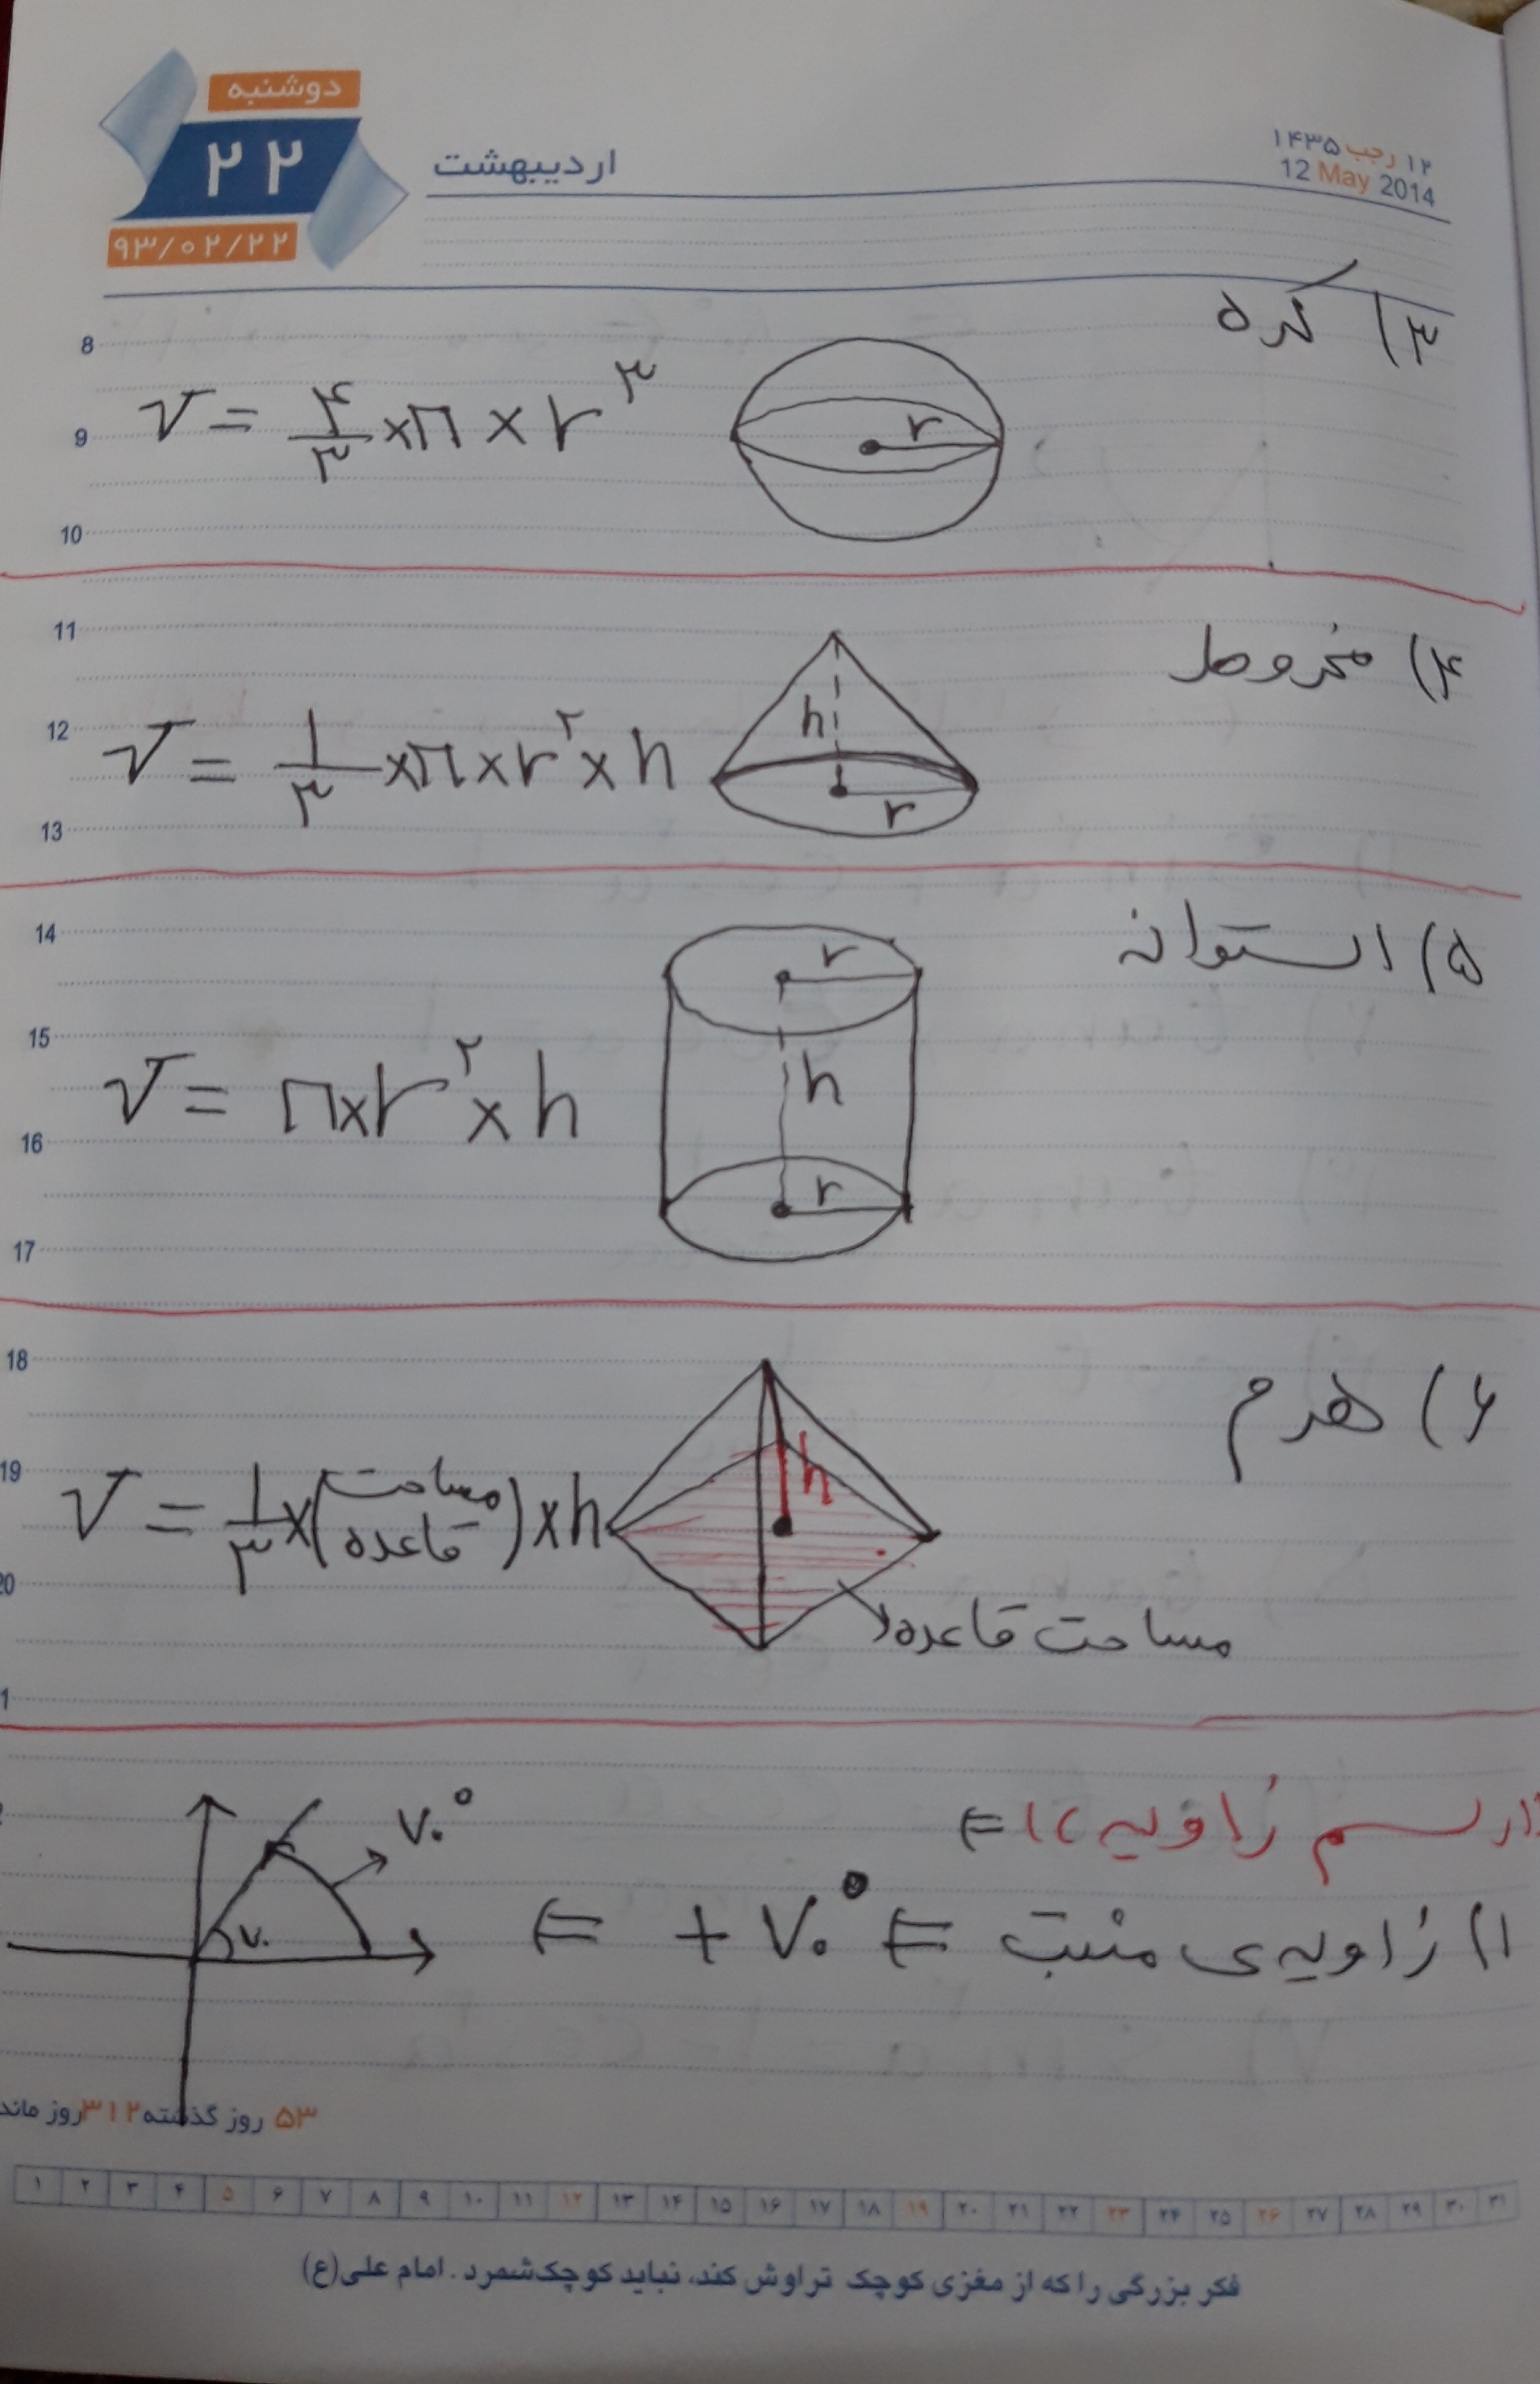 دوشنبه
۲۲
۹۳/۰۲/۲۲
اردیبهشت
۱۲ رجب ۱۴۳۵
12 May 2014
۳) کره
V = ۴/۳ × π × r^۳
r
۴) مخروط
V = ۱/۳ × π × r^۲ × h
h
r
۵) استوانه
V = π × r^۲ × h
r
h
r
۶) هرم
V = ۱/۳ × (مساحت قاعده) × h
h
مساحت قاعده
رسم زاویه
۱) زاویه‌ی مثبت ⇐ +۷۰° ⇐
۷۰°
۷۰
8
9
10
11
12
13
14
15
16
17
18
19
20
۵۳ روز گذشته ۳۱۲ روز ماند
۱ ۲ ۳ ۴ ۵ ۶ ۷ ۸ ۹ ۱۰ ۱۱ ۱۲ ۱۳ ۱۴ ۱۵ ۱۶ ۱۷ ۱۸ ۱۹ ۲۰ ۲۱ ۲۲ ۲۳ ۲۴ ۲۵ ۲۶ ۲۷ ۲۸ ۲۹ ۳۰ ۳۱
فکر بزرگی را که از مغزی کوچک تراوش کند، نباید کوچک شمرد. امام علی(ع)